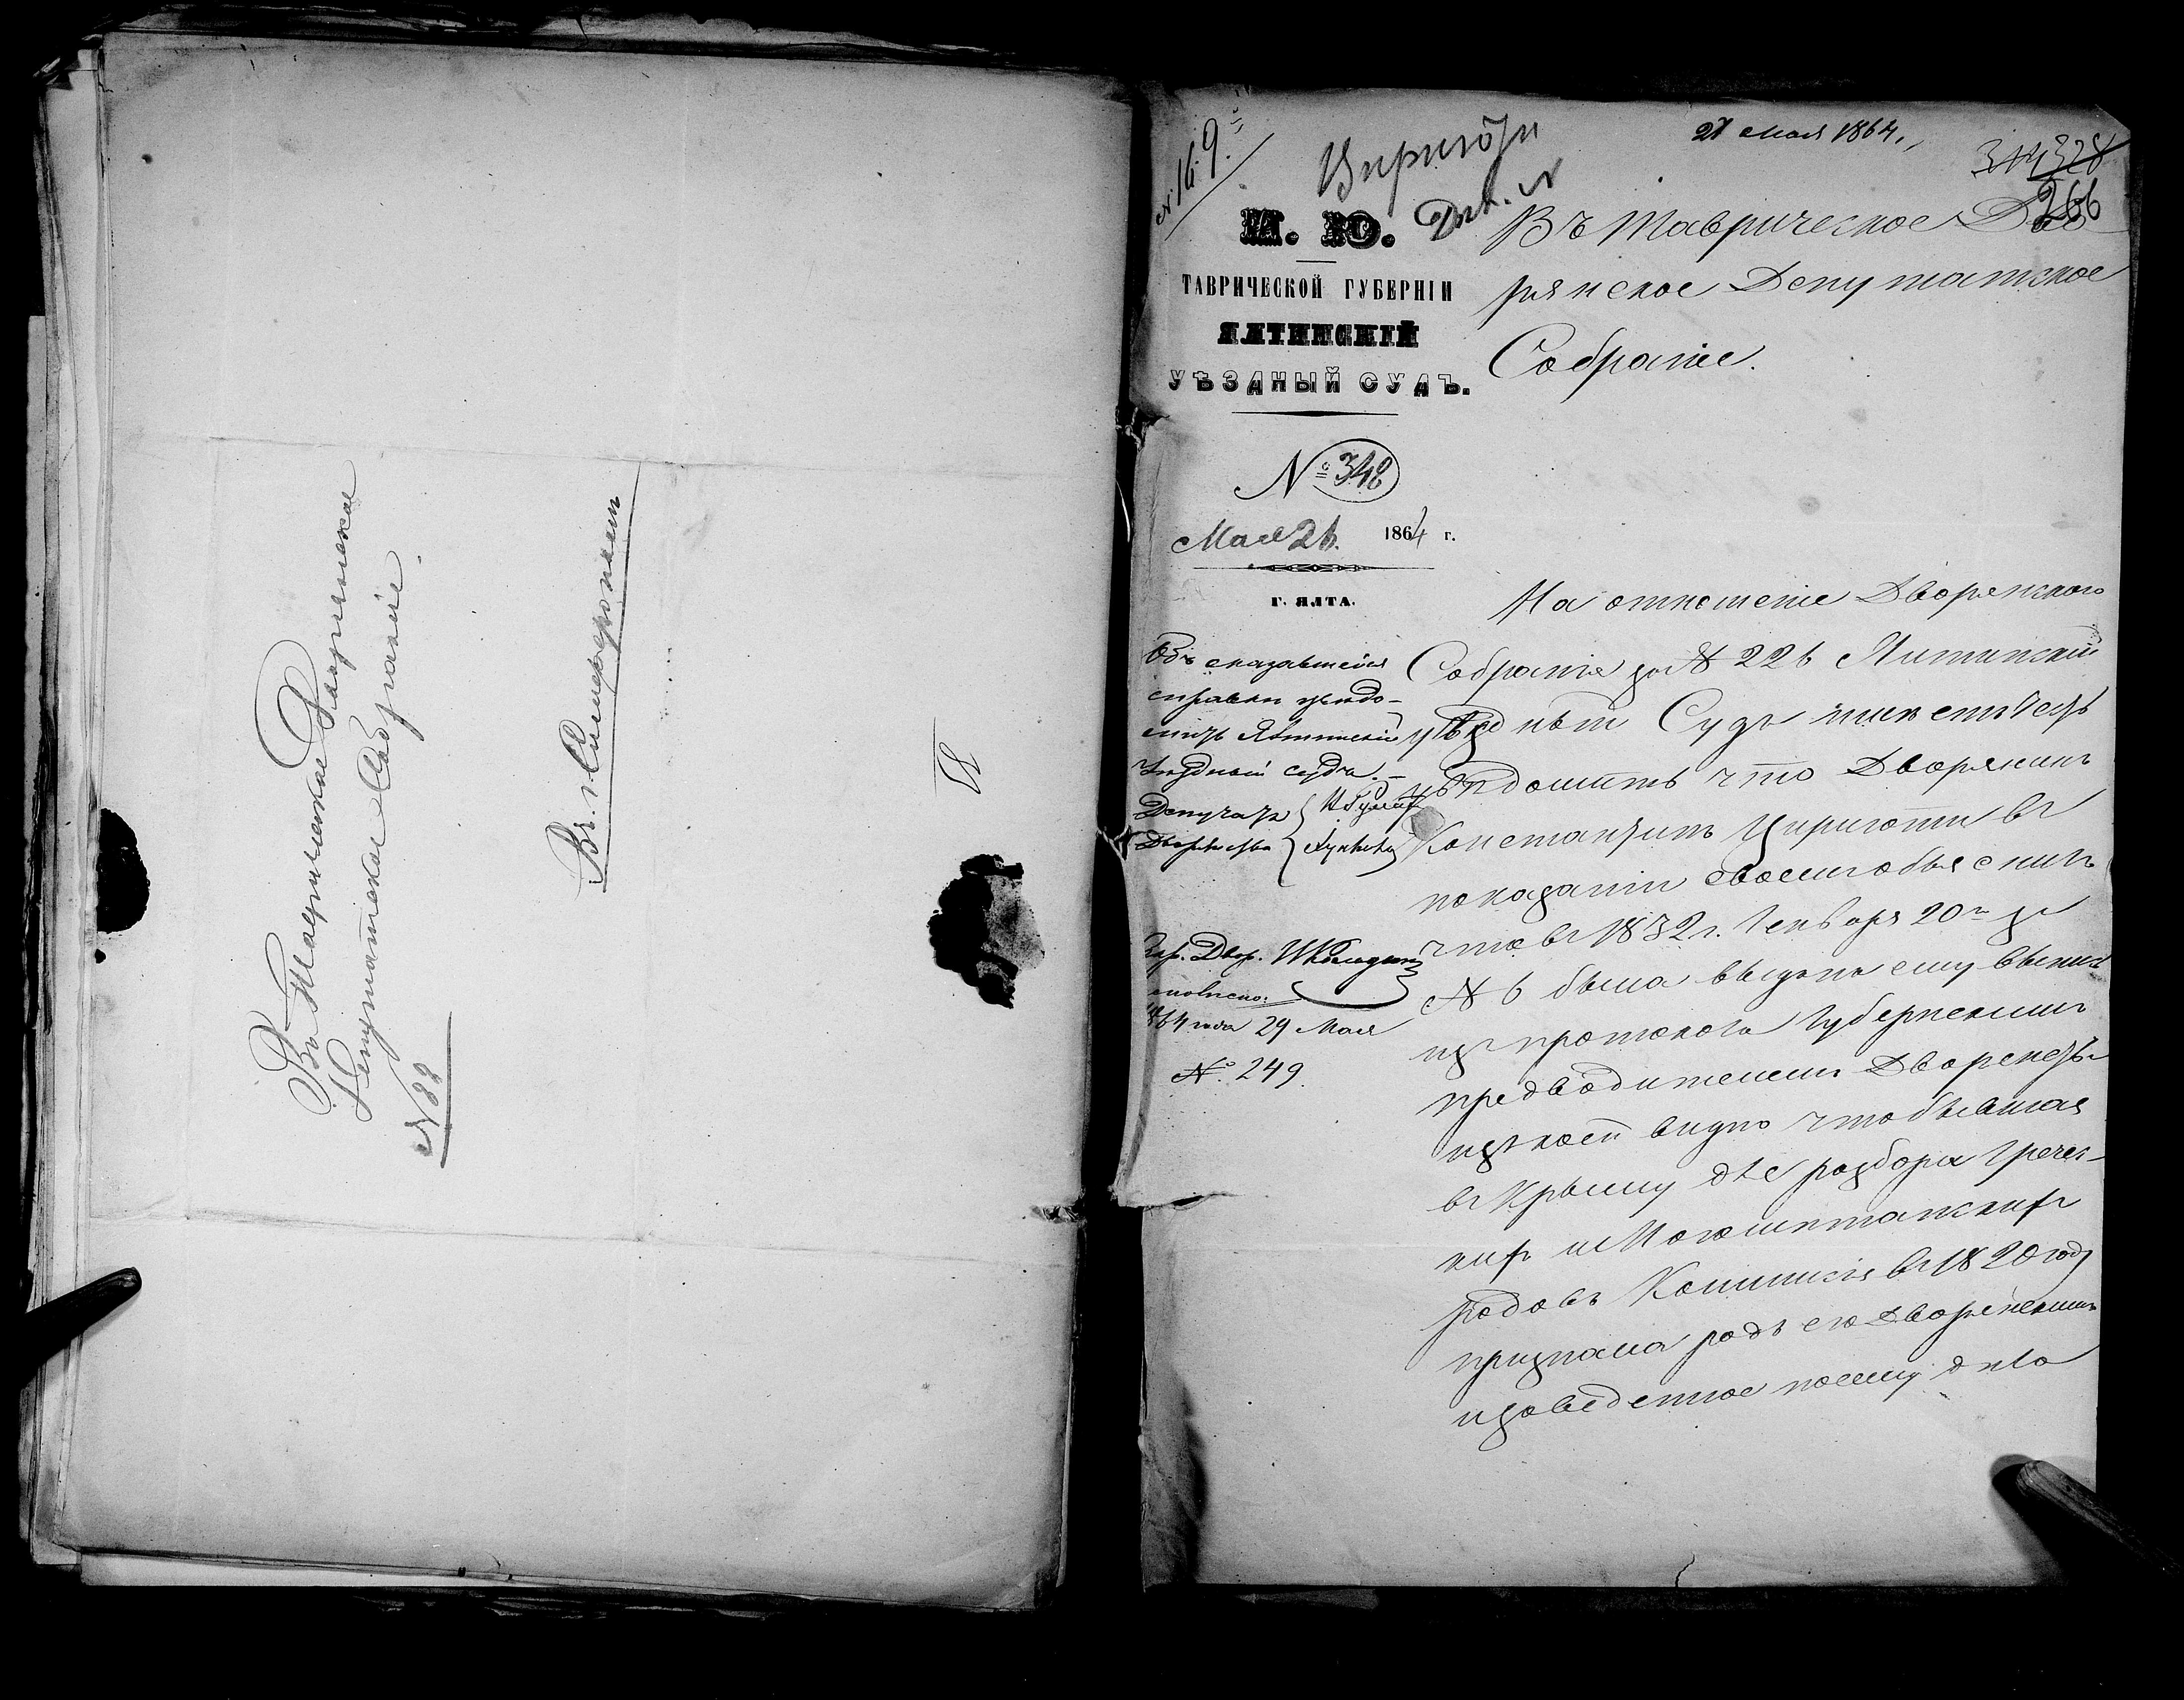 Въ Таврическое Дворянское
Депутатское Собраніе.
N 88
Въ г. Симферополь
№ 169.
27 Мая 1864.
314 328
266
М. Ю.
ТАВРИЧЕСКОЙ ГУБЕРНІИ
ЯЛТИНСКІЙ
УѢЗДНЫЙ СУДЪ.
№ 348
Мая 26. 1864 г.
Г. ЯЛТА.
Въ Таврическое Дво
рянское Депутатское
Собраніе.
Объ оказавшейся
справкѣ увѣдо-
мить Ялтинскій
Уѣздный судъ. -
Депутаты
Дворянства
1864 года 29 Мая
№ 249.
На отношеніе Дворянскаго
Собранія за № 226 Ялтинскій
Уѣздный Судъ имѣетъ честь
увѣдомить что Дворянинъ
Константинъ Цириготи въ
показаніи своемъ объяснилъ
что въ 1832 г. Генваря 20го за
№ 6 была выдана ему выпись
изъ протокола Губернскимъ
предводителемъ Дворянства
изъ коей видно что бывшая
въ Крыму для разбора Гречес-
кихъ и Магометанскихъ
родовъ Комиссія въ 1820 году
признала родъ его Дворянскимъ
произведенное по сему дѣло